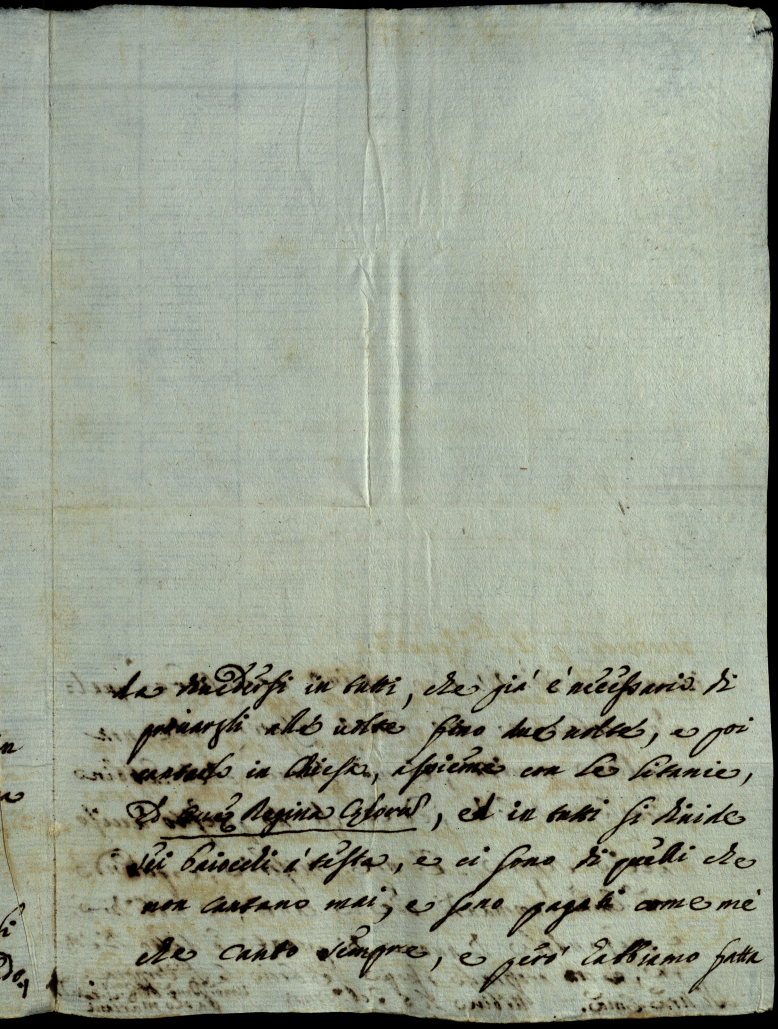 da diuidersi in tutti, che già é necessario di
prouargli alle uolte sino due uolte, e poi
cantarlo in Chiesa, assieme con le litanie,
Regina Celorum, ed in tutti si diuide
sei baiocchi á testa, e ci sono di quelli che
non cantano mai, e sono pagati come mé
che canto sempre, e peró habbiamo fatta